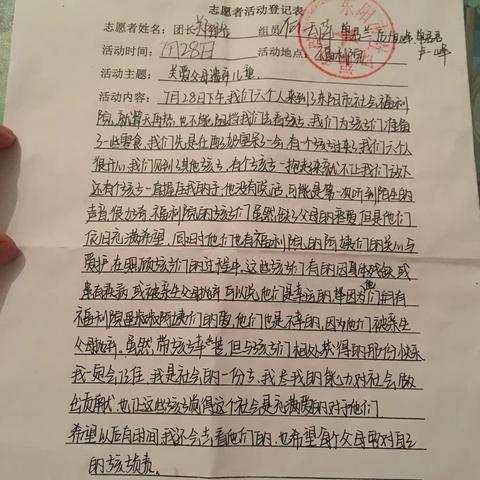 志愿者活动登记表
志愿者姓名：团长 组员
活动时间：7月28日 活动地点：福利院
活动主题：关爱父母遗弃儿童
活动内容：7月28日下午,我们六个人来到了东阳市社会福利
院,就算天再热,也不能阻挡我们去看孩子,我们为孩子们准备
了一些零食,我们先是在 了一会,有个孩子过来了我们六个人
很开心,我们见到了其他孩子,有个孩子一抱起来就不让我们放下
还有个孩子一直握住我的手,他没有说话,可能是第一次听到陌生的
声音很好奇,福利院的孩子们虽然缺了父母的疼爱但是他们
依旧充满希望,同时他们也有福利院的阿姨们的关心与
爱护在照顾孩子们的过程中,这些孩子们有的因身体残缺或
患有疾病,或被亲生父母抛弃可以说,他们是幸运的,因为他们拥有
福利院里叔叔阿姨们的爱,他们也是不幸的,因为他们被亲生
父母抛弃。虽然,带孩子辛苦,但与孩子们相处获得的那份快乐
我一定会记住,我是社会的一份子,我尽我的能力对社会做
出贡献,也让这些孩子觉得这个社会是充满爱的对于他们
希望以后有时间,我还会去看他们的,也希望每个父母要对自己
的孩子负责。